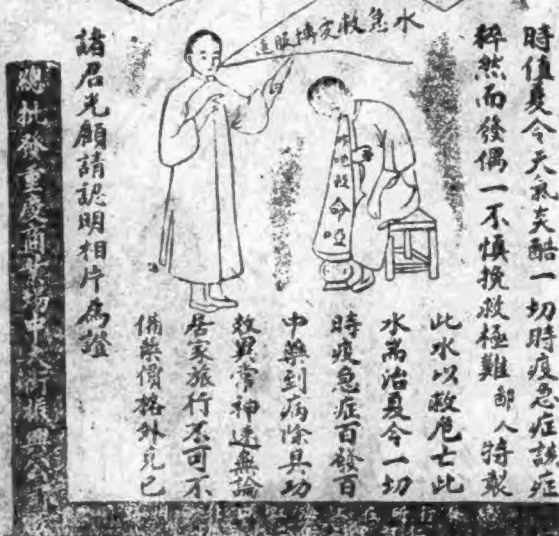 時值夏令天氣炎酷一切時疫急症該症
猝然而發偶一不慎挽救極難 鄙人特製
此水以救危亡此
水耑治夏令一切
時疫急症百發百
中藥到病除具功
效異常神速無論
居家旅行不可不
備藥價格外克己
服救急水
救命啞
諸君光顧請認明相片為證
總批發重慶商業場中大街振興公司